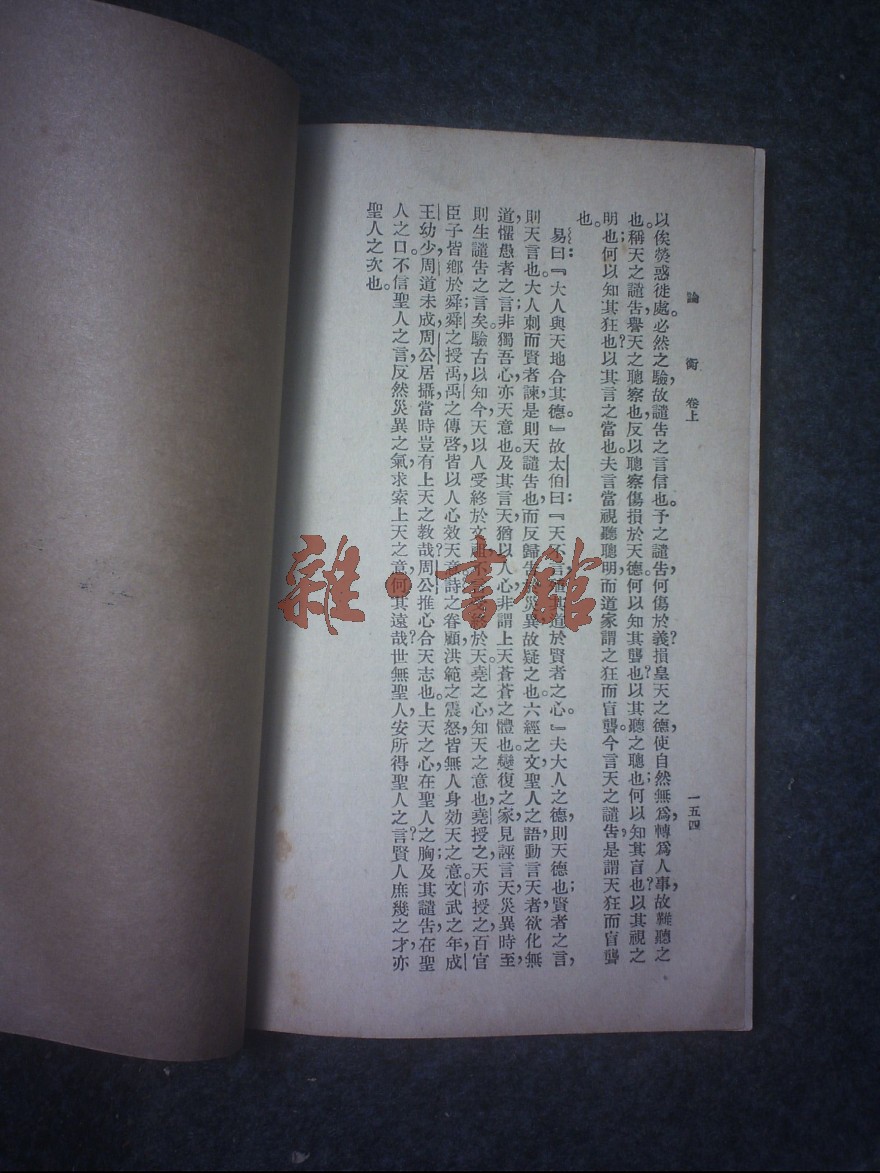 論　衡　卷上　一五四
以俟熒惑徙處。必然之驗，故譴告之言信也。予之譴告，何傷於義？損皇天之德，使自然無爲，轉爲人事，故難聽之
也。稱天之譴告，譽天之聰察也；反以聰察傷損於天德。何以知其聾也？以其聽之聰也；何以知其盲也？以其視之
明也；何以知其狂也？以其言之當也。夫言當視聽聰明，而道家謂之狂而盲聾。今言天之譴告，是謂天狂而盲聾
也。
易曰：『大人與天地合其德。』故太伯曰：『天不言，殖其道於賢者之心。』夫大人之德，則天德也；賢者之言，
則天言也。大人刺而賢者諫，是則天譴告也，而反歸告於災異，故疑之也。六經之文，聖人之語，動言天者，欲化無
道，懼愚者之言；非獨吾心，亦天意也。及其言天，猶以人心，非謂上天蒼蒼之體也。變復之家，見誣言天，災異時至，
則生譴告之言矣。驗古以知今，天以人受終於文祖，不言受終於天。堯之心知天之意也。堯授之，天亦授之，百官
臣子皆鄉於舜。舜之授禹，禹之傳啓，皆以人心效天意。詩之眷顧，洪範之震怒，皆無人身効天之意。文武之年，成
王幼少，周道未成，周公居攝，當時豈有上天之教哉？周公推心合天志也。上天之心，在聖人之胸；及其譴告，在聖
人之口。不信聖人之言，反然災異之氣，求索上天之意，何其遠哉？世無聖人，安所得聖人之言？賢人庶幾之才，亦
聖人之次也。
雜·書館